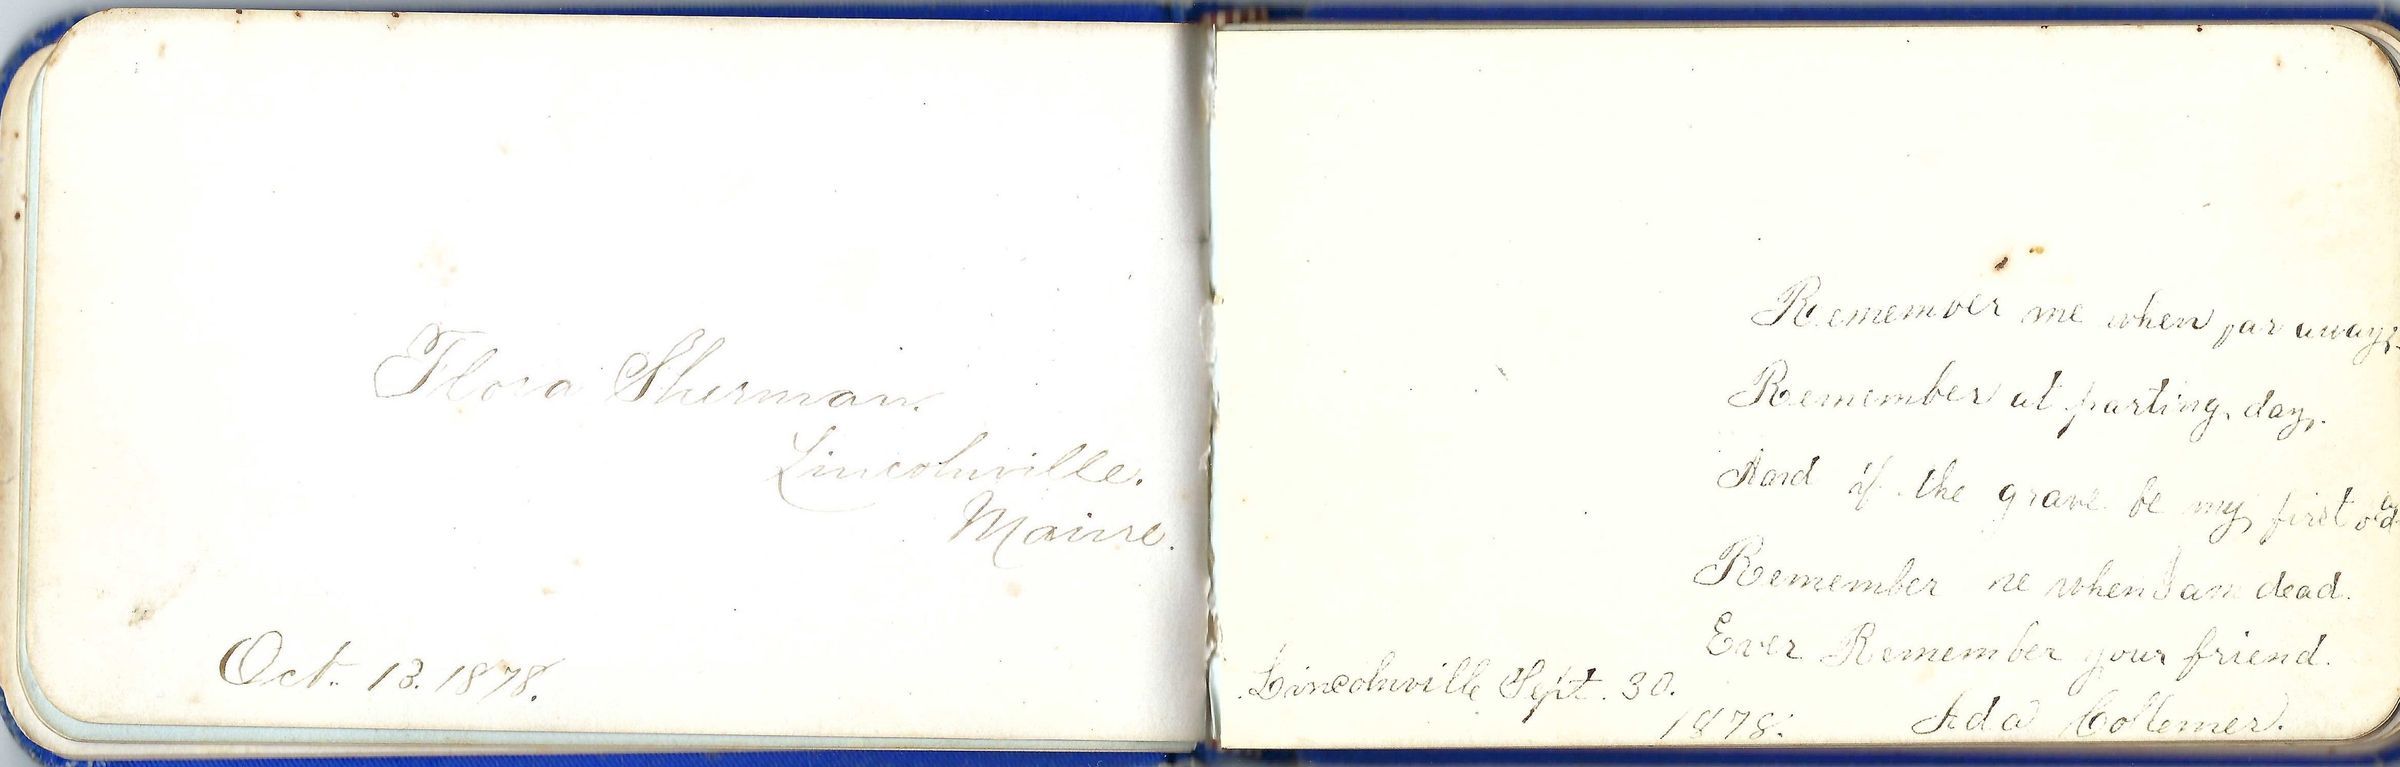 Flora Sherman.
Lincolnville.
Maine.
Oct. 13. 1878.
Remember me when far away,
Remember at parting day,
And if the grave be my first bed
Remember me when I am dead.
Ever Remember your friend.
Lincolnville Sept. 30.
1878.
Ada